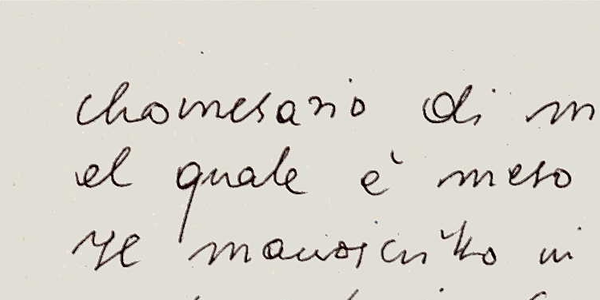 chomesario di m
el quale è meso
manoscritto in